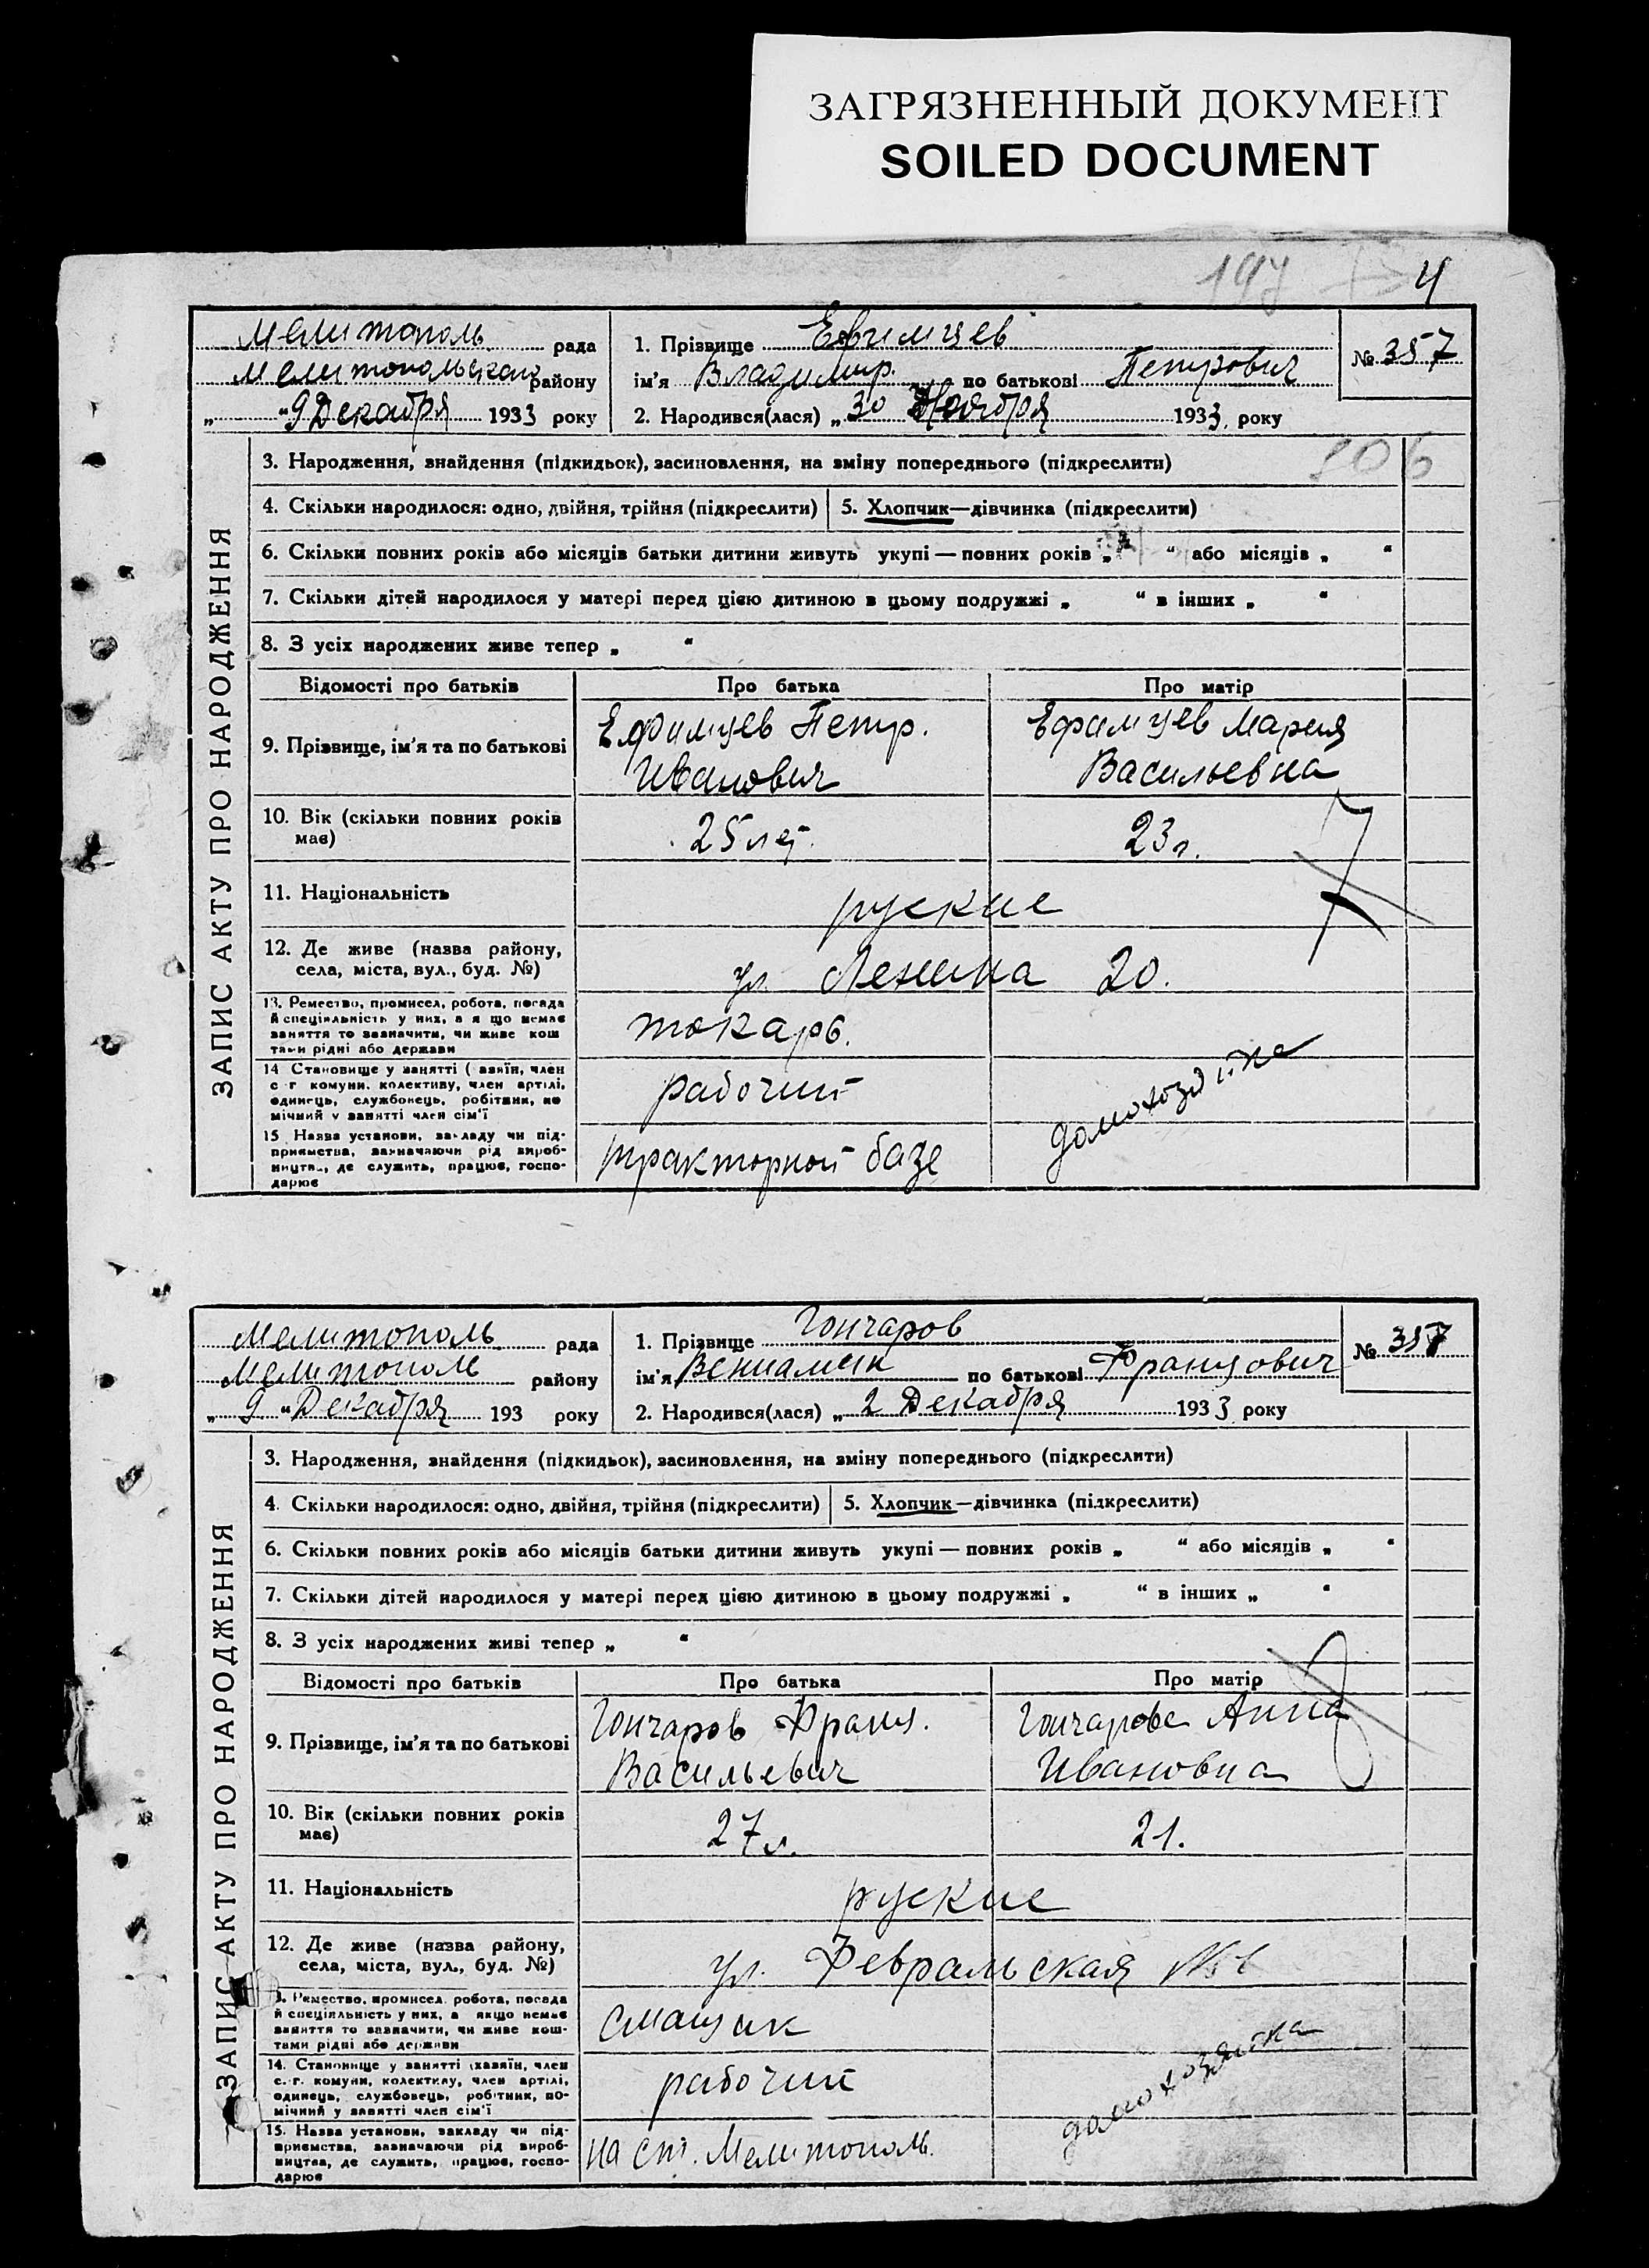 ЗАГРЯЗНЕННЫЙ ДОКУМЕНТ
SOILED DOCUMENT
197 4
Мелитополь рада
Мелитопольского району
„ "9 Декабря 1933 року
1. Прізвище Ефимцев
ім'я Владимир по батькові Петрович
2. Народився(лася) „ 30 Ноября 1933 року
№ 357
ЗАПИС АКТУ ПРО НАРОДЖЕННЯ
3. Народження, знайдення (підкидьок), засиновлення, на зміну попереднього (підкреслити)
4. Скільки народилося: одно, двійня, трійня (підкреслити) 5. Хлопчик—дівчинка (підкреслити)
6. Скільки повних років або місяців батьки дитини живуть укупі — повних років „ “ або місяців „ “
7. Скільки дітей народилося у матері перед цією дитиною в цьому подружжі „ “ в інших „ “
8. З усіх народжених живе тепер „ “
Відомості про батьків Про батька Про матір
9. Прізвище, ім'я та по батькові
Ефимцев Петр.
Иванович
Ефимцев Мария
Васильевна
10. Вік (скільки повних років
має)
25 лет.
23 л.
11. Національність
руские
12. Де живе (назва району,
села, міста, вул., буд. №)
ул. Ленина 20.
13. Ремество, промисел, робота, посада
й спеціяльність у них, а я що немає
заняття то зазначити, чи живе кош
тами рідні або держави
токарь.
14 Становище у занятті (хазяїн, член
с г комуни, колективу, член артілі,
одинець, службовець, робітник, по
мічний у занятті член сім'ї
рабочий
15 Назва установи, закладу чи під-
приємства, зазначаючи рід вироб-
ництва, де служить, працює, госпо-
дарює
тракторной базе
домохозяйка
Мелитополь рада
Мелитополь району
„ 9 " Декабря 193 року
1. Прізвище Гончаров
ім'я Вениамин по батькові Францович
2. Народився(лася) „ 2 Декабря 1933 року
№ 357
ЗАПИС АКТУ ПРО НАРОДЖЕННЯ
3. Народження, знайдення (підкидьок), засиновлення, на зміну попереднього (підкреслити)
4. Скільки народилося: одно, двійня, трійня (підкреслити) 5. Хлопчик—дівчинка (підкреслити)
6. Скільки повних років або місяців батьки дитини живуть укупі — повних років „ “ або місяців „ “
7. Скільки дітей народилося у матері перед цією дитиною в цьому подружжі „ “ в інших „ “
8. З усіх народжених живі тепер „ “
Відомості про батьків Про батька Про матір
9. Прізвище, ім'я та по батькові
Гончаров Франц.
Васильевич
Гончарова Анна
Ивановна
10. Вік (скільки повних років
має)
27 л.
21.
11. Національність
руские
12. Де живе (назва району,
села, міста, вул., буд. №)
ул. Февральская
Ремество, промисел, робота, посада
й спеціяльність у них, а якщо немає
заняття то зазначити, чи живе кош-
тами рідні або держави
смащик
14. Становище у занятті (хазяїн, член
с.-г. комуни, колективу, член артілі,
одинець, службовець, робітник, по-
мічний у занятті член сім'ї
рабочий
15. Назва установи, закладу чи під-
приємства, зазначаючи рід вироб-
ництва, де служить, працює, госпо-
дарює
на ст. Мелитополь.
домохозяйка